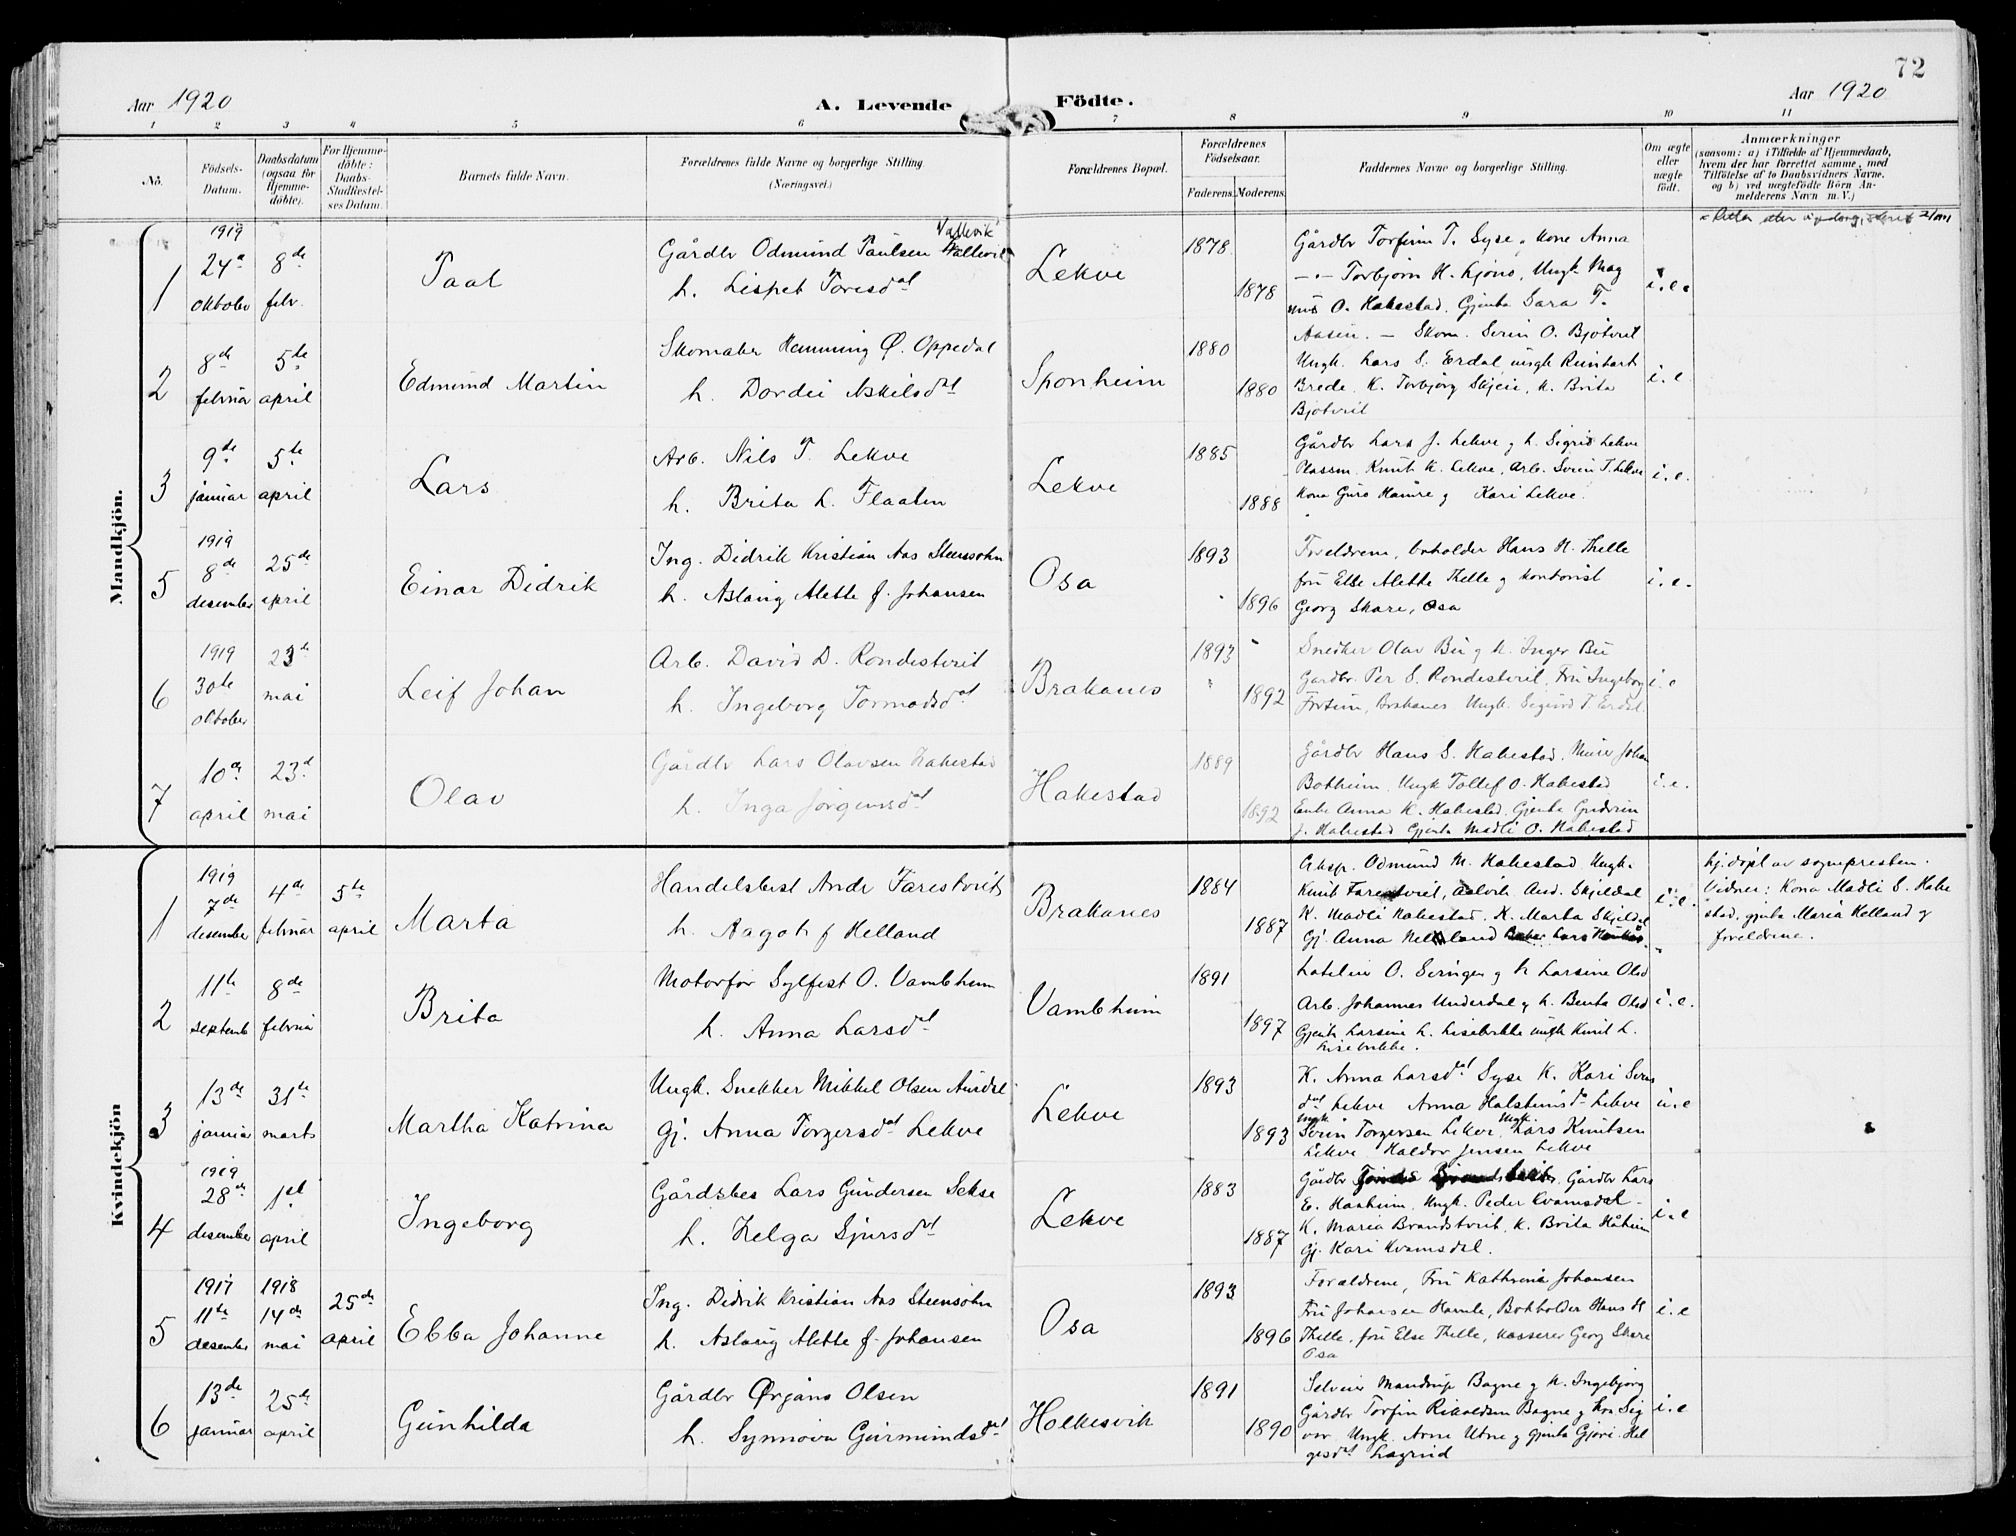 72
Aar 1920
A. Levende Födte.
Aar 1920
1 2 3 4 5 6 7 8 9 10 11
No.
Födsels-Datum.
Daabsdatum (ogsaa for Hjemme-döbte).
For Hjemme-döbte: Daabs-Stadfæstel-ses Datum.
Barnets fulde Navn.
Forældrenes fulde Navne og borgerlige Stilling.
(Næringsvei.)
Forældrenes Bopæl.
Forældrenes Födselsaar.
Faderens. Moderens.
Faddernes Navne og borgerlige Stilling.
Om ægte eller uægte födt.
Anmærkninger
(saasom: a) i Tilfælde af Hjemmedaab,
hvem der har forrettet samme, med
Tilföielse af to Daabsvidners Navne,
og b) ved uægtefödte Börn An-
melderens Navn m. V.)
Mandkjön.
1 1919 24de oktober 8de febr. Paal
Gårdbr Odmund Paulsen Vallevik
h. Lispet Toresdat
Lekve 1878 1878
Gårdbr Torfinn T. Syse, kone Anna
—"— Torbjørn H. Ljono, Ungk. Mag
nus O. Hakestad, Gjenta Sara T.
Aasen.
i.e.
2 8de februar 5te april Edmund Martin
Skomaker Hemming Ø. Oppedal
h. Dordei Askilsdt
Sponheim 1880 1880
Skom. Sverin O. Bjotveit
Ungk. Lars S. Erdal, ungk Reinhart
Brede. K. Torbjørg Skjeie, K. Brita
Bjotveit
i.e.
3 9de januar 5te april Lars
Arb. Nils T. Lekve
h. Brita L. Flaaten
Lekve 1885 1888
Gårdbr Lars J. Lekve og h. Sigrid Lekve
Plassm. Knut K. Lekve, Arb. Sverin T. Lekve
Kona Guro Hamre og Kari Lekve.
i.e.
5 1919 8de desember 25de april Einar Didrik
Ing. Didrik Kristian Aas Steensohn
h. Aslaug Alette f. Johansen
Osa 1893 1896
Foreldrene, bokholder Hans H. Thelle
fru Else Alette Thelle og kontorist
Georg Skare, Osa
i.e.
6 1919 30te oktober 23de mai Leif Johan
Arb. David D. Rondestveit
h. Ingeborg Tormodsdat
Brakanes 1893 1892
Snedker Olav Bu og h. Inger Bu
Gardbr. Per S. Rondestveit, Fru Ingeborg
Brakanes Ungk. Sigurd T. Erdal.
i.e
7 10de april 23de mai Olav
Gårdbr Lars Olavsen Hakestad
h. Inga Jørgensdat
Hakestad 1889 1892
Gårdbr Hans S. Hakestad, Murer Johan
Botheim, Ungk Tollef O. Hakestad
Enke Anna K. Hakestad, Gjenta Gudrun
J. Hakestad Gjenta Madli O. Hakestad
i.e.
Kvindekjön
1 1919 7de desember 4de februar 5te april Marta
Handelsbest Andr Tarestveit
h. Aagot f Helland
Brakanes 1884 1887
Odmund M. Hakestad Ungk.
Knut Tarestveit, Aalvik. And. Skjeldal
K. Madli Hakestad. K. Marta Skjeldal
Gj. Anna Helland
i.e.
hj.døpt av sognepresten.
Vidner: Kona Madli S. Hake
stad, gjenta Maria Helland og
foreldrene.
2 11te septemb 8de februa Brita
Motorfør Sylfest O. Vambheim
h. Anna Larsdat
Vambheim 1891 1897
Arb. Johannes Underdal og h. Benta Olsd
Gjenta Larsine L. Lisebrekke ungk Knut L.
Lisebrekke.
i.e.
3 13de januar 31te marts Martha Katrina
Ungk. Snekker Mikkel Olsen Aurdal
Gj. Anna Torgersdat Lekve
Lekve 1893 1893
K. Anna Larsdat Syse K. Kari Svens
dat Lekve Anna Halsteinsda Lekve
Ungk Sverin Torgersen Lekve, Ungk Lars Knutsen
Lekve Haldor Jensen Lekve
u.e
4 1919 28de desember 1st april Ingeborg
Gårdsbes Lars Gundersen Sekse
h. Helga Sjursdat
Lekve 1883 1887
Gårdbr Gårdbr Lars
E. Haaheim, Ungk. Peder Kvamsdal
K. Maria Brandstveit, K. Brita Håheim
Gj. Kari Kvamsdal.
i.e
5 1917 11te desember 1918 14de mai 25de april Ebba Johanne
Ing. Didrik Kristian Aas Steensohn
h. Aslaug Alette f. Johansen
Osa 1893 1896
Forældrene, Fru Kathrine Johansen
Fru Johansen Hamle, Bokholder Hans H
Thelle, fru Else Thelle, kasserer Georg Skare
Osa
i.e
6 13de januar 25de april Gunhilda
Gårdbr Ørjans Olsen
h. Synnøva Geirmundsdat
Holkesvik 1891 1890
Selveier Mandrup Bagne og h. Ingebjørg
Gårdbr Torfin Rikoldsen Bagne og kra Sig
vor Ungk. Arne Utne og gjenta Gjøri Hel
gesdat Lagreid
i.e